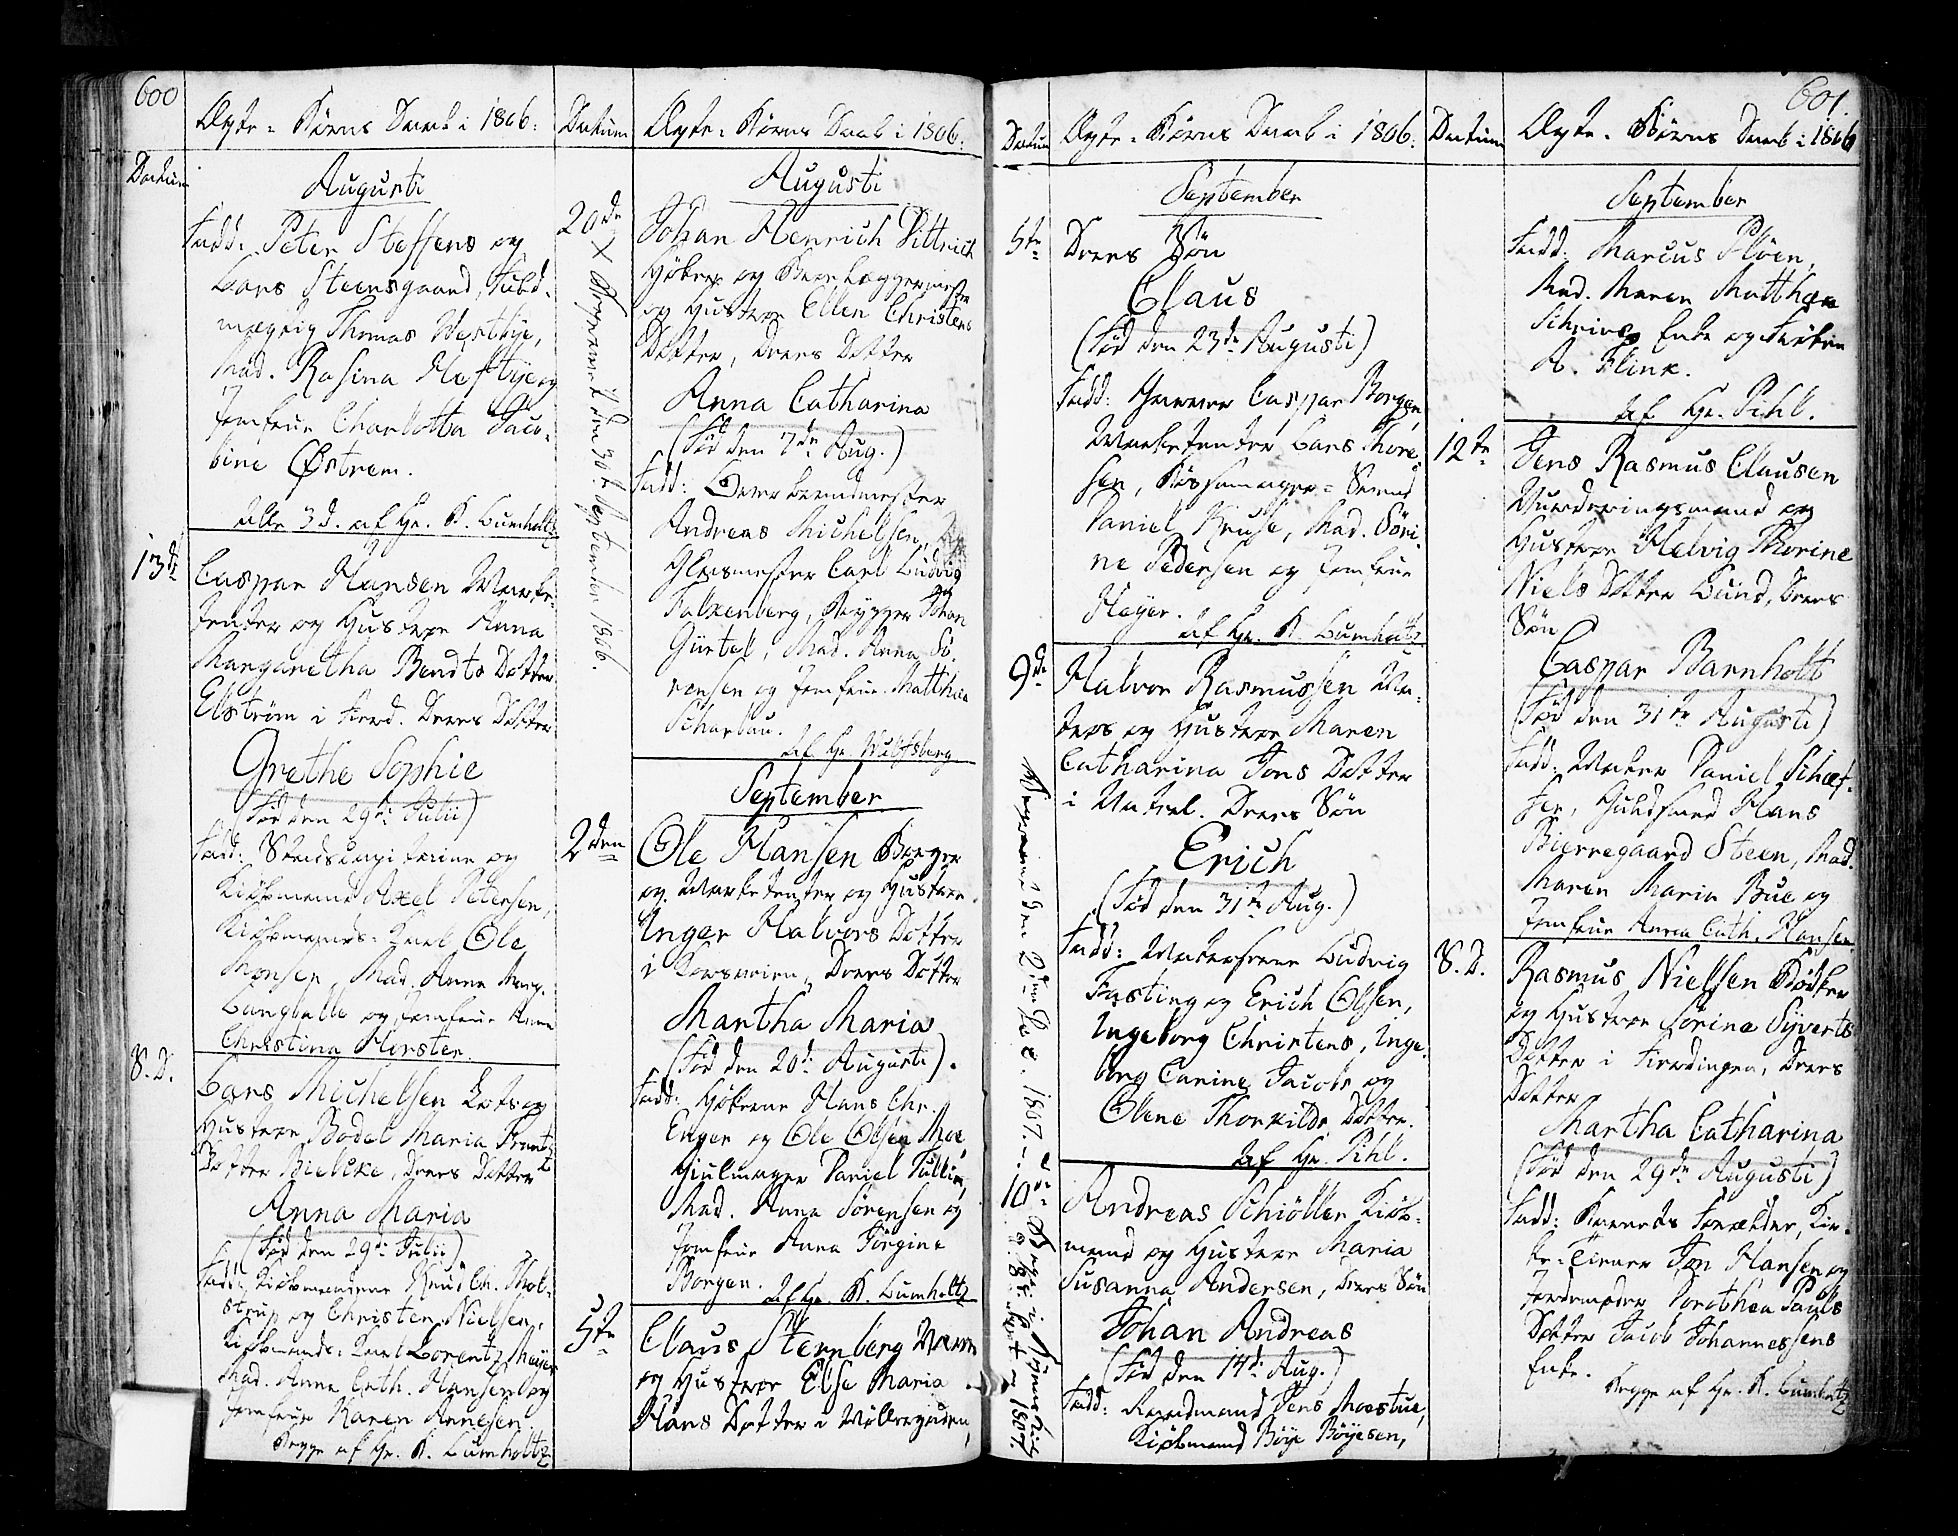 600
Ægte-Børns Daab i 1806.
Datum
Augusti
Fadd: Peter Steffens og
Lars Steensgaard, Fuld-
mægtig Thomas Westbye,
Mad. Rosina Heftye og
Jomfrue Charlotta Jaco-
bine Østrem.
alle 3 d. af Hr. K. Lumholtz
13de
Caspar Hansen Marke-
tenter og Hustrue Anna
Margaretha Bendts Datter
Elstrøm i Fierd. Deres Datter
Grethe Sophie
(Fød den 29de Julii)
Fadd: Stadscapitaine og
Kiøbmand Axel Petersen,
Kiøbmands-Karl Ole
Monsen, Mad. Anna Marg.
Langballe og Jomfrue Anne
Christina Horster.
S. D.
Lars Michelsen Lots og
Hustrue Bodel Maria Frantz
Datter Bielcke, deres Datter
Anna Maria
(Fød den 29de Julii)
Fadd: Kiøbmændene Knud Ch. Hol-
strup og Christen Nielsen,
Kiøbmands-Karl Lorentz Meyer
Mad. Anne Cath. Hansen og
Jomfrue Karen Annesen.
Begge af Hr. K. Lumholtz
Datum
Ægte-Børns Daab i 1806.
Augusti
20de
Johan Henrich Dittrich
Høker og Brolæggermester
og Hustrue Ellen Christens
Datter, deres Datter
Anna Catharina
(Fød den 7de Aug.)
Fadd: Overbrandmester
Andreas Michelsen,
Glasmester Carl Ludvig
Falkenberg, Brygger Johan
Gürtel, Mad. Anna Sö-
rensen og Jomfrue Matthea
Scharbau.
af Hr. Wulfsberg
× Begravet den 30te September 1806.
September
2den
Ole Hansen Borger
og Marketenter og Hustrue
Inger Halvors Datter
i Korsveien, Deres Datter
Martha Maria
(Fød den 20de Augusti).
Fadd: Høkerne Hans Chr.
Enger og Ole Olsen Moe,
Hiulmager Daniel Tullin,
Mad. Anna Sörensen og
Jomfrue Anna Jörgine
Borgen. af Hr. K. Lumholtz
5te
Claus Sternberg
og Hustrue Else Maria
Hans Datter i Møllergaden,
Datum
Ægte-Børns Daab i 1806.
September
5te
Deres Søn
Claus
(Fød den 23de Augusti)
Fadd: Garver Caspar Borgen,
Marketenter Lars Thore-
sen, Daniel Kruse, Mad. Söri-
ne Pedersen og Jomfrue
Heyer.
af Hr. K. Lumholtz
9de
Halvor Rasmussen Ma-
tros og Hustrue Maren
Catharina Jons Datter
i Vatrel. Deres Søn
Erich
(Fød den 31te Aug.)
Fadd: Matroserne Ludvig
Fasting og Erich Olsen,
Ingeborg Christens, Inge-
borg Carine Jacobs og
Olene Thorkilds Datter.
af Hr. Pihl.
Begravet den 2den 1807.
10de
Andreas Schiøller Kiøb-
mand og Hustrue Maria
Susanna Andersen, deres Søn
Johan Andreas
(Fød den 14de Aug.)
Fadd: Raadmand Jens Moestue,
Kiøbmand Böye Böyesen,
Datum
601.
Ægte-Børns Daab i 1806
September
Fadd: Marcus Pløen,
Mad. Maren Matthea
Schrivers Enke og Frøken
A. Flink.
af Hr. Pihl.
12te
Jens Rasmus Clausen
Vurderingsmand og
Hustrue Helvig Thorine
Niels Datter Lund, Deres
Søn
Caspar Barnholt
(Fød den 31te Augusti)
Fadd: Maler Daniel Schæf-
fer, Guldsmed Hans
Bierregaard Steen, Mad.
Maren Maria Bue og
Jomfrue Anna Cath. Hansen.
S. D.
Rasmus Nielsen Bødker
og Hustrue Sörine Syverts
Datter i Fierdingen, deres
Datter
Martha Catharina
(Fød den 29de Augusti)
Fadd: Barnets Forældre, Kir-
ke-Tiener Jon Hansen og
Jordemoder Dorothea Pauls
Datter Jacob Johannessens
Enke.
Begge af Hr. K. Lumholtz